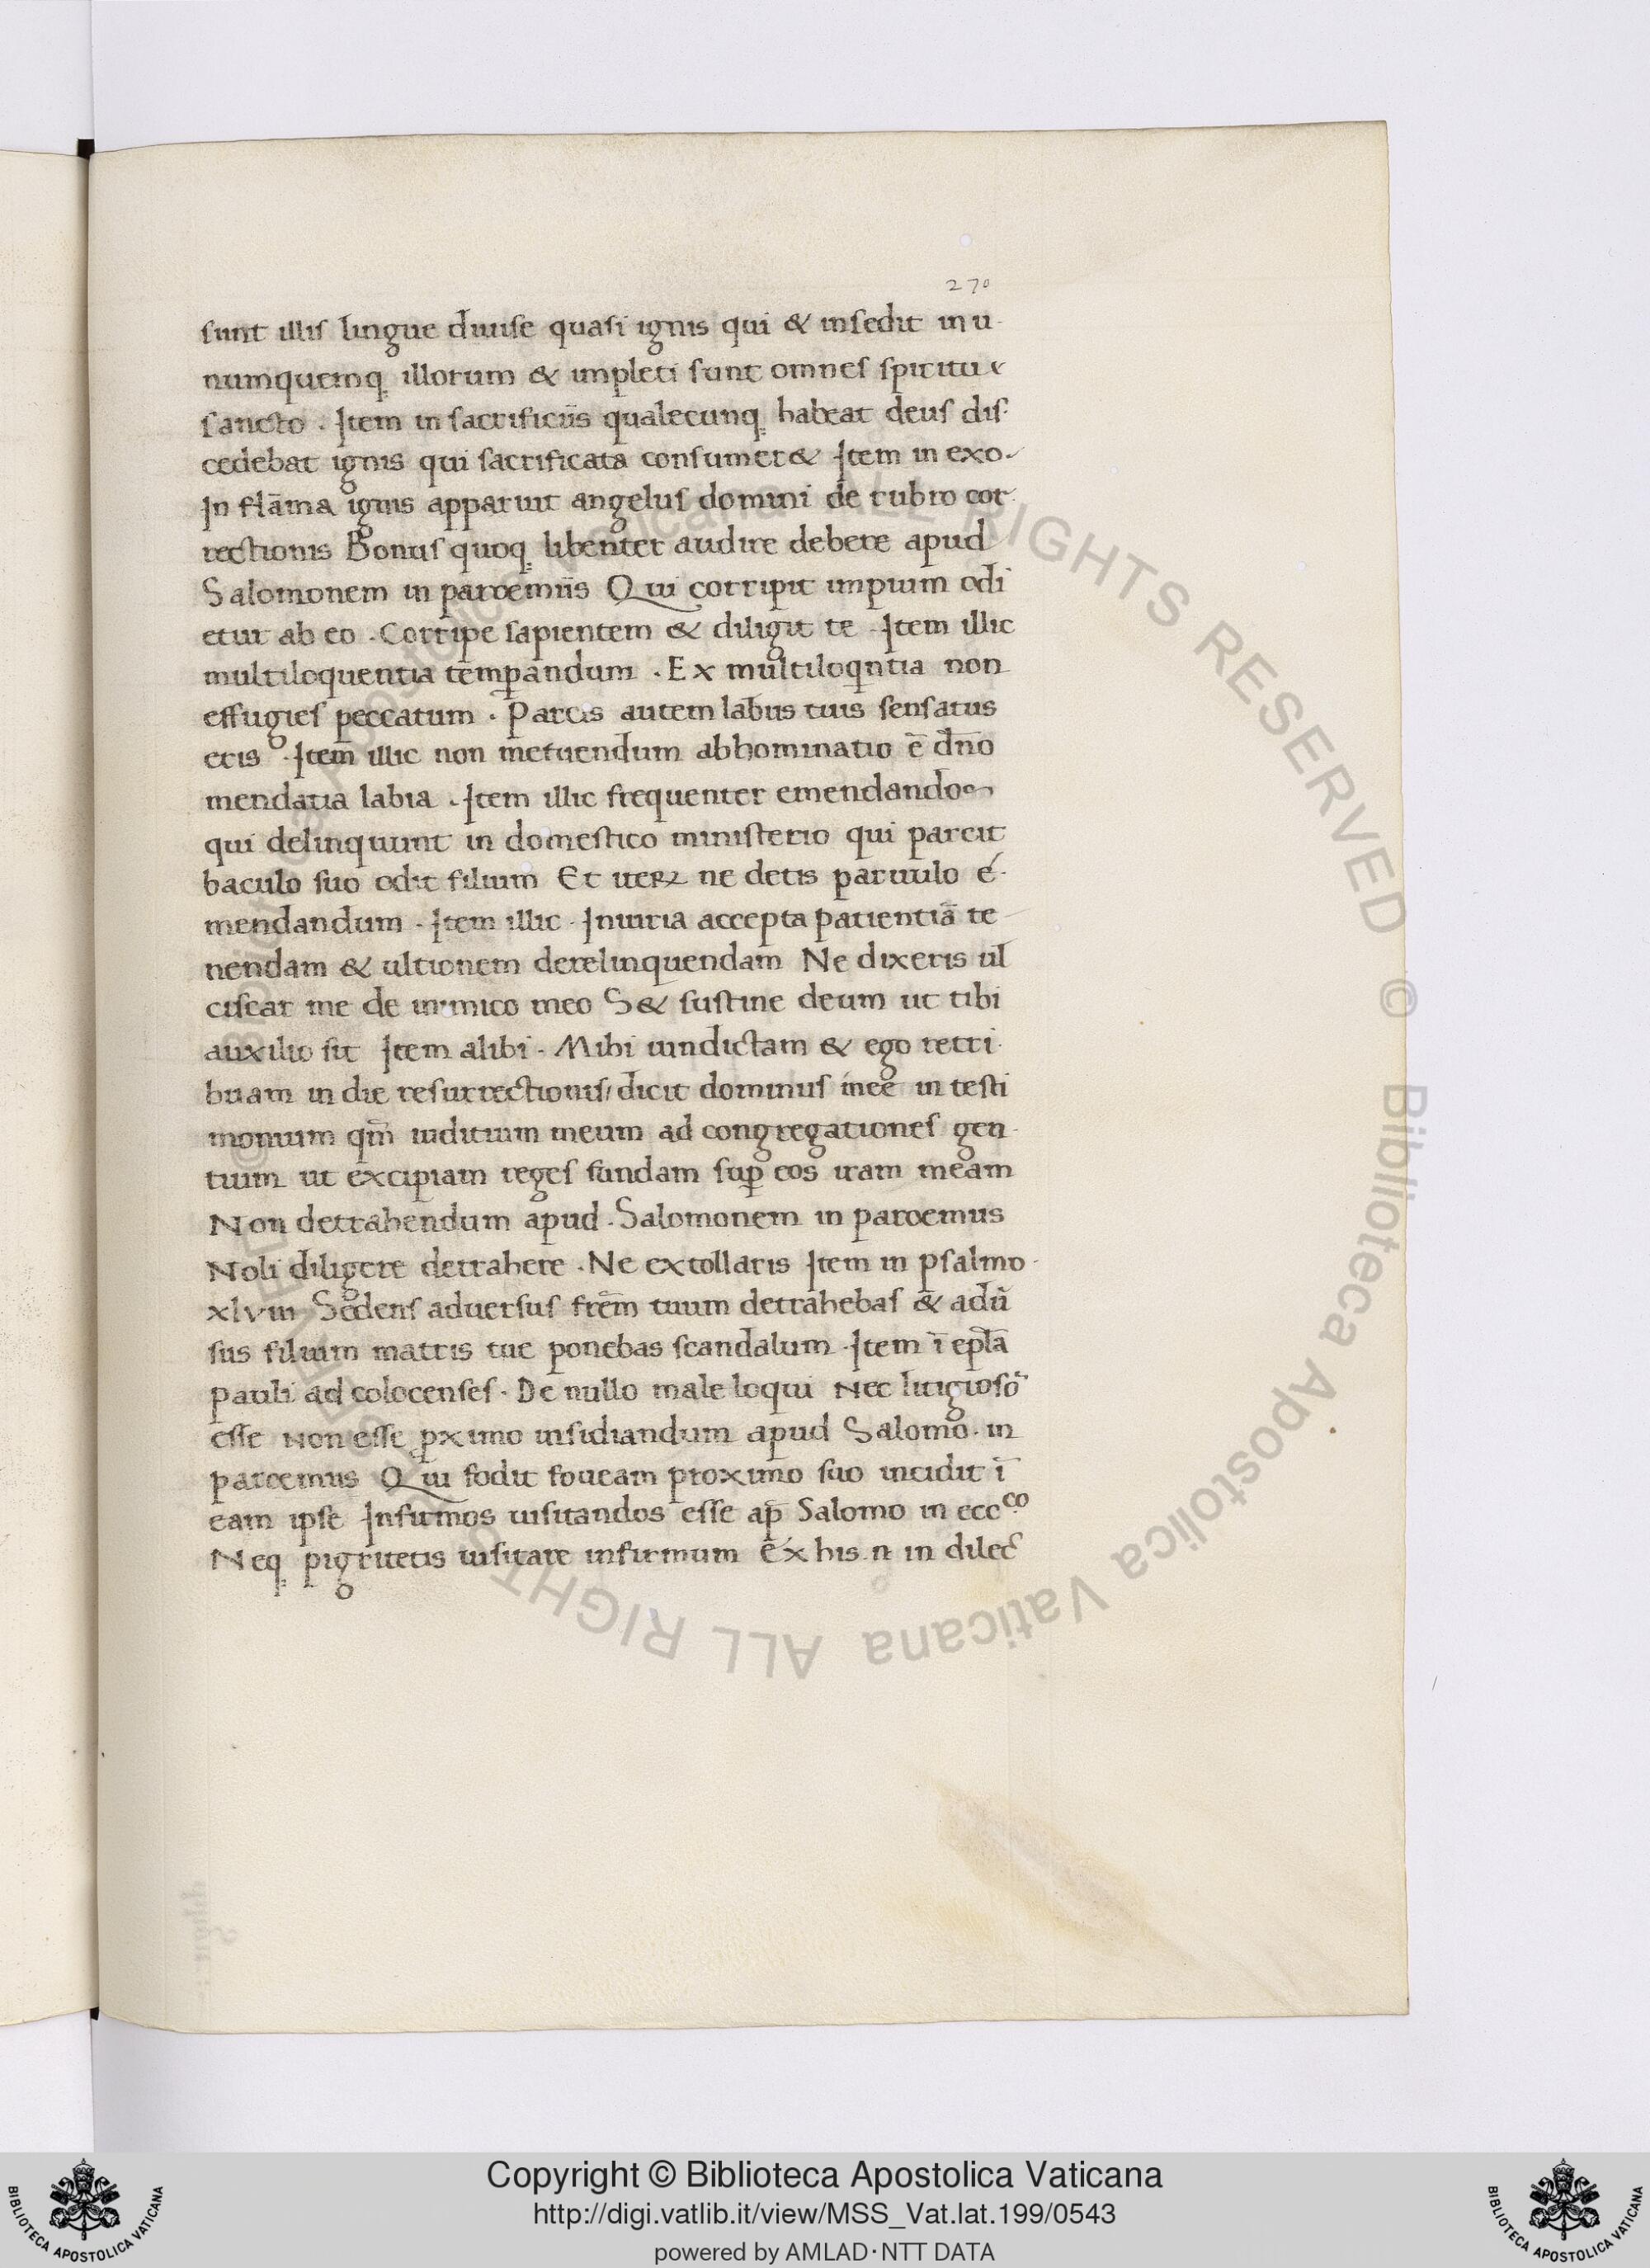 270
sunt illis lingue diuise quasi ignis qui & insedit in u-
numquemq; illorum & impleti sunt omnes spiritu
sancto . Item in sacrificiis qualecunq; habeat deus dis-
cedebat ignis qui sacrificata consumer& Item in exo.
In flāma ignis apparuit angelus domini de rubro cor-
rectionis Bonus quoq; libenter audire debere apud
Salomonem in paroemiis Qui corripit impium odi
etur ab eo . Corripe sapientem & diligit te . Item illic
multiloquentia temꝑandum . Ex multiloqntia non
effugies peccatum . Parcis autem labiis tuis sensatus
eris . Item illic non metuendum abhominatio ē dn̄o
mendatia labia . Item illic frequenter emendandos
qui delinquunt in domestico ministerio qui parcit
baculo suo odit filium Et iteꝝ ne detis paruulo é-
mendandum . Item illic . Iniuria accepta patientiā te-
nendam & ultionem derelinquendam Ne dixeris ul
ciscar me de inimico meo S& sustine deum ut tibi
auxilio sit Item alibi . Mihi uindictam & ego retri-
buam in die resurrectionis/ dicit dominus inee in testi
monium qm̄ iuditium meum ad congregationes gen-
tium ut excipiam reges fundam suꝑ eos iram meam
Non detrahendum apud . Salomonem in paroemiis
Noli diligere detrahere . Ne extollaris Item in psalmo
xlviii Sedens aduersus frēm tuum detrahebas & adū
sus filium matris tue ponebas scandalum . Item ī epl̄a
pauli ad colocenses . De nullo male loqui Nec litigiosō
esse Non esse ꝓximo insidiandum apud Salomo. in
paroemiis Qui fodit foueam proximo suo incidit ī
eam ipse Infirmos uisitandos esse ap̄ Salomo in eccco
Neq; pigritetis uisitare infirmum Ex his .n. in dilec̄
© Biblioteca Apostolica Vaticana ALL RIGHTS RESERVED
Copyright © Biblioteca Apostolica Vaticana
http://digi.vatlib.it/view/MSS_Vat.lat.199/0543
powered by AMLAD·NTT DATA
BIBLIOTECA APOSTOLICA VATICANA
BIBLIOTECA APOSTOLICA VATICANA